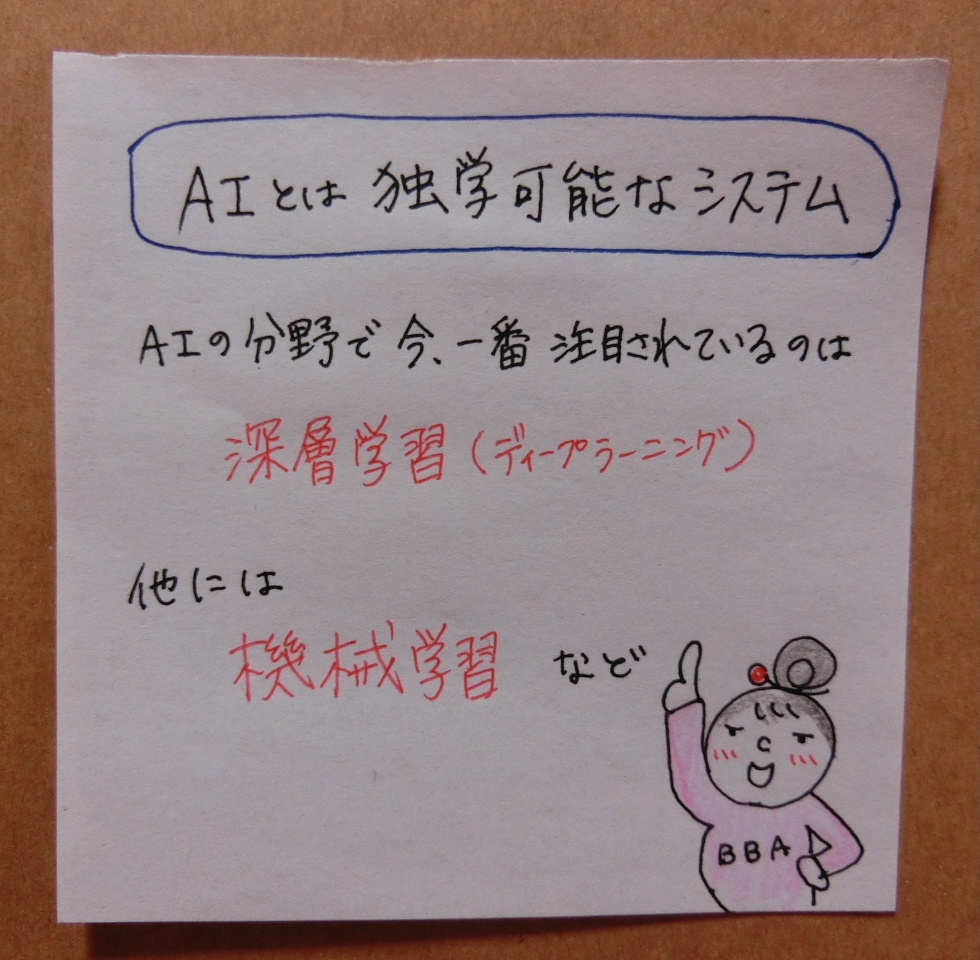 AIとは独学可能なシステム
AIの分野で今、一番注目されているのは
深層学習（ディープラーニング）
他には
機械学習 など
BBA